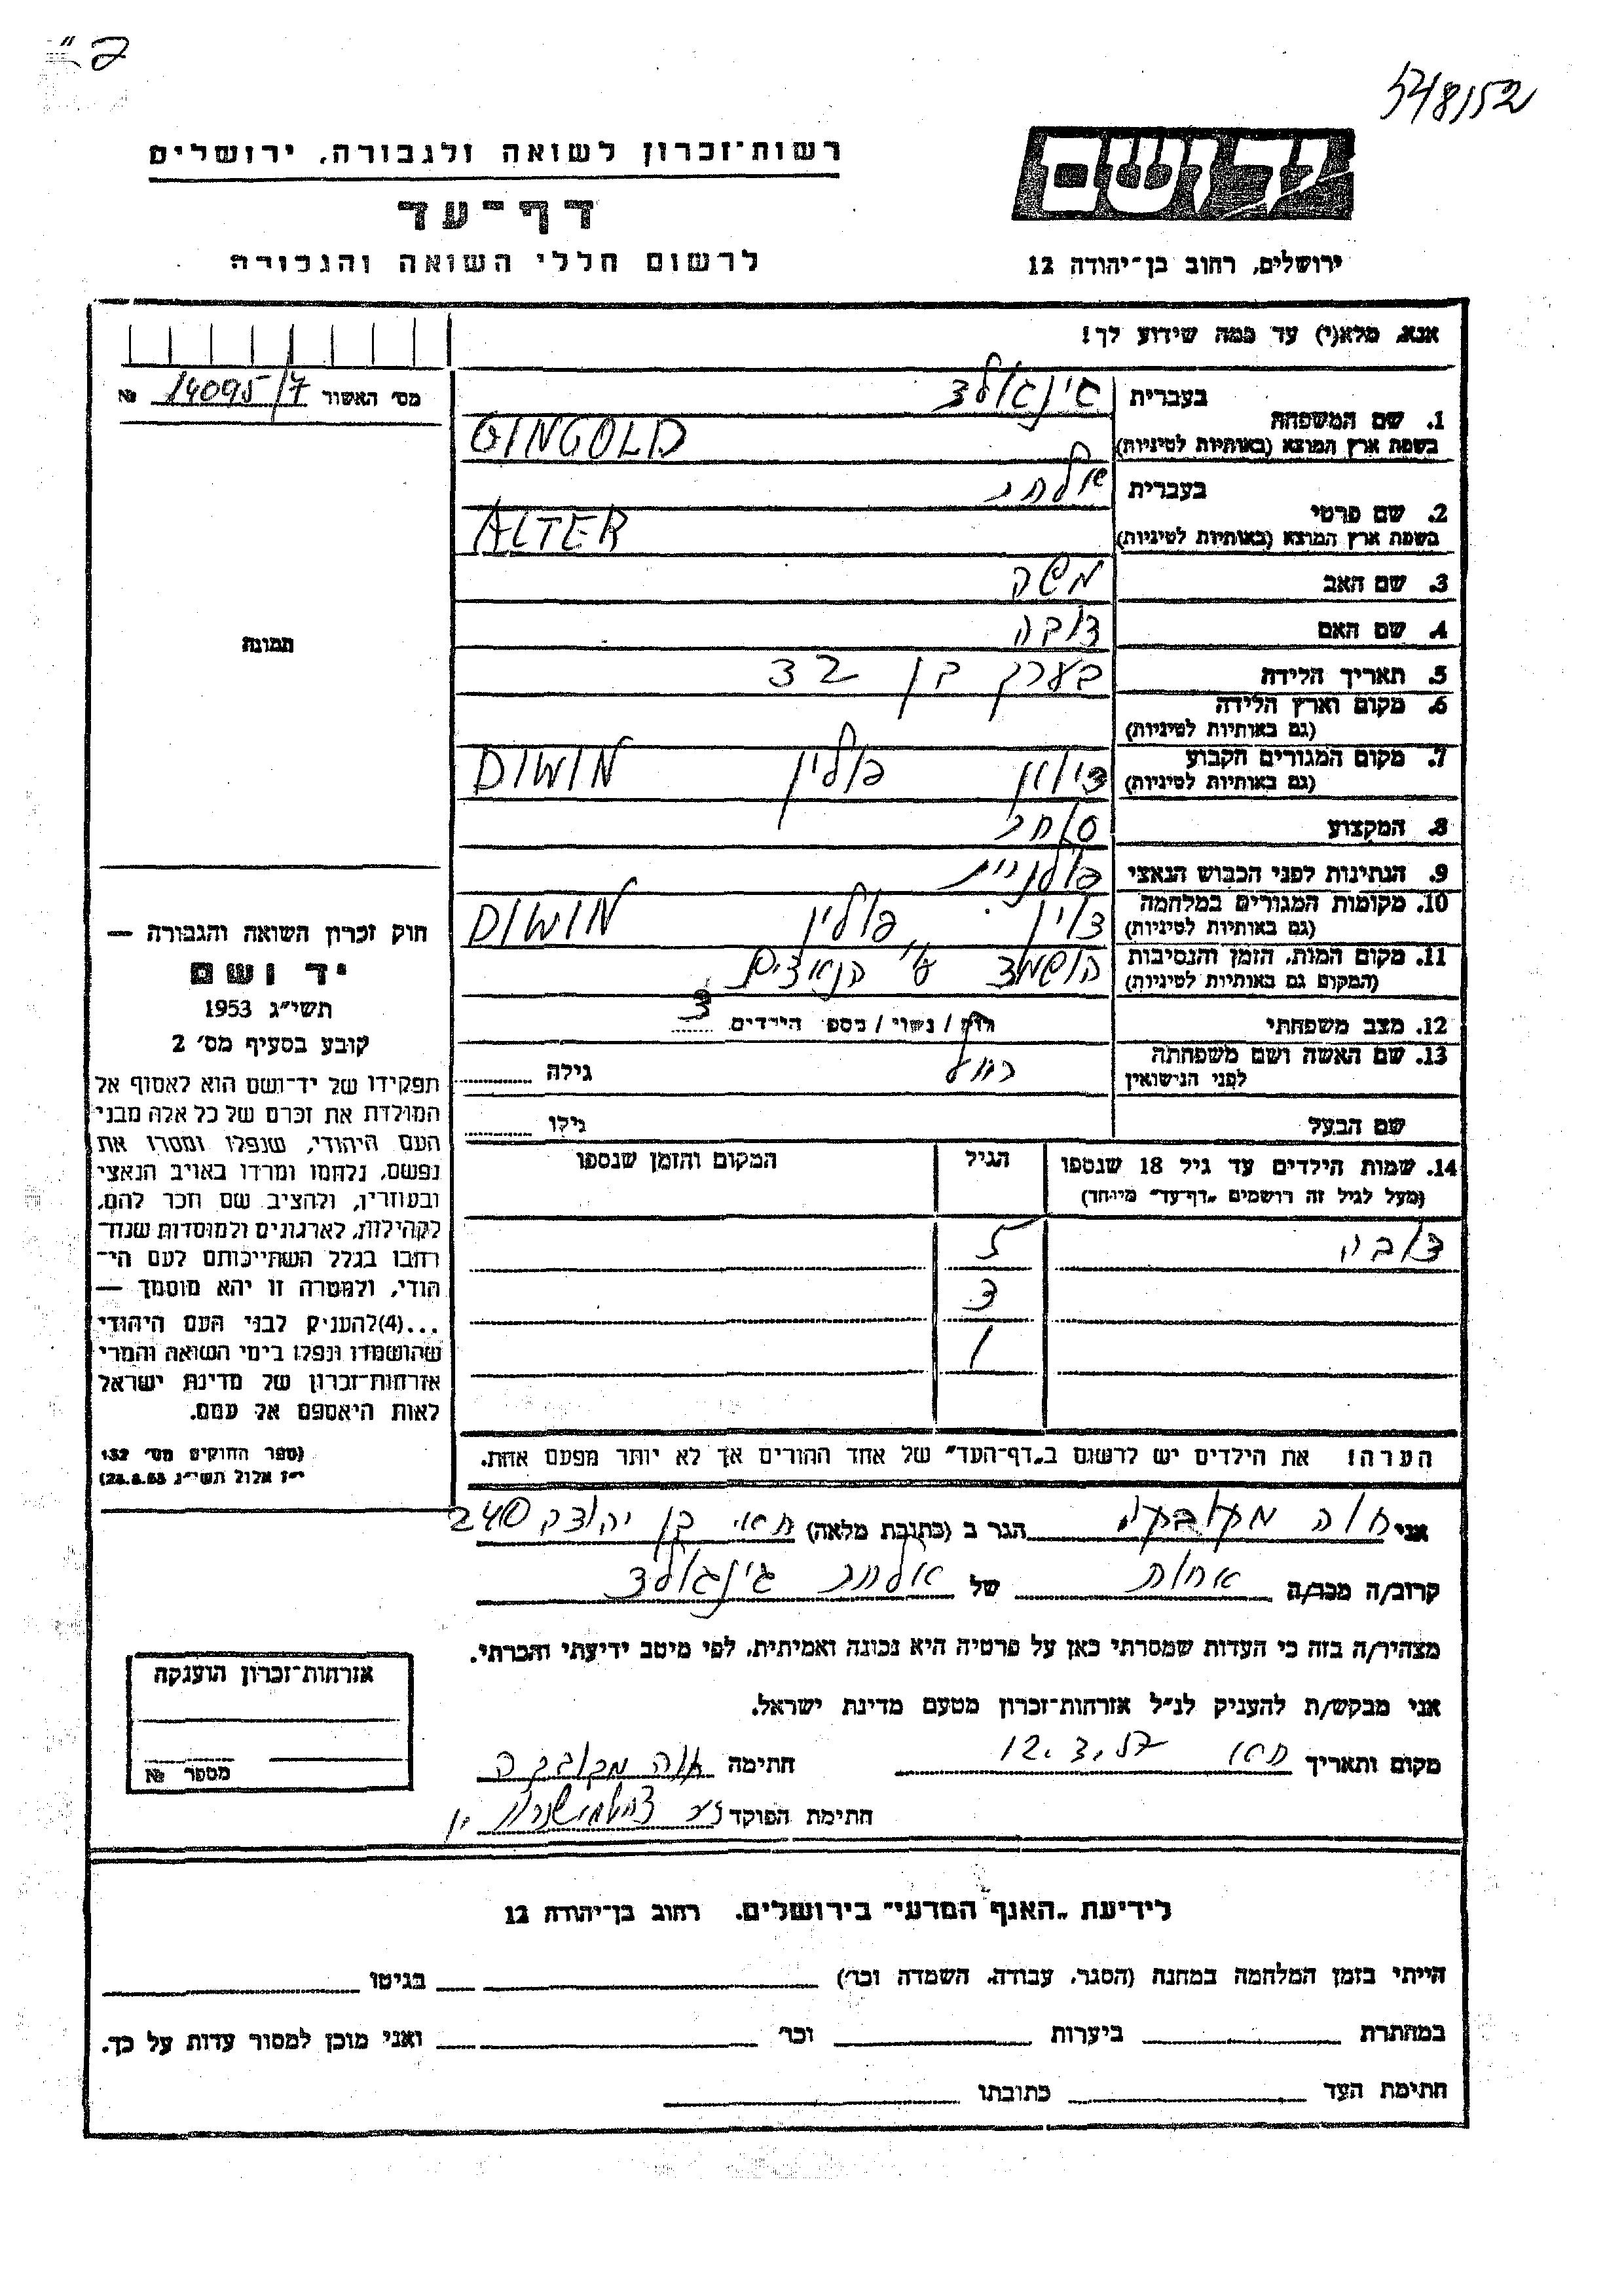 548/52
ידושם
ירושלים, רחוב בן־יהודה 12
רשות־זכרון לשואה ולגבורה, ירושלים
דף־עד
לרשום חללי השואה והגבורה
אנא, מלא(י) עד כמה שידוע לך!
מס' האשור 14095/7 №
בעברית גינגולד
1. שם המשפחה
בשפת ארץ המוצא (באותיות לטיניות) GINGOLD
בעברית
2. שם פרטי
בשפת ארץ המוצא (באותיות לטיניות) ALTER
3. שם האב משה
4. שם האם דובה
5. תאריך הלידה בערך בן 32
6. מקום וארץ הלידה
(גם באותיות לטיניות)
7. מקום המגורים הקבוע
(גם באותיות לטיניות) דיוון פולין DIWIN
8. המקצוע סוחר
9. הנתינות לפני הכבוש הנאצי פולנית
10. מקומות המגורים במלחמה
(גם באותיות לטיניות) פולין DIWIN
11. מקום המות, הזמן והנסיבות
(המקום גם באותיות לטיניות) הושמד ע"י הנאצים
12. מצב משפחתי רווק / נשוי / מספר הילדים 3
13. שם האשה ושם משפחתה
לפני הנישואין רחל גילה
שם הבעל גילו
14. שמות הילדים עד גיל 18 שנספו
(מעל לגיל זה רושמים „דף־עד" מיוחד)
הגיל
המקום והזמן שנספו
דובה 5
3
1
הערה! את הילדים יש לרשום ב„דף־העד" של אחד ההורים אך לא יותר מפעם אחת.
תמונה
חוק זכרון השואה והגבורה —
יד ושם
תשי"ג 1953
קובע בסעיף מס' 2
תפקידו של יד־ושם הוא לאסוף אל
המולדת את זכרם של כל אלה מבני
העם היהודי, שנפלו ומסרו את
נפשם, נלחמו ומרדו באויב הנאצי
ובעוזריו, ולהציב שם וזכר להם,
לקהילות, לארגונים ולמוסדות שנח־
רבו בגלל השתייכותם לעם הי־
הודי, ולמטרה זו יהא מוסמך —
...(4)להעניק לבני העם היהודי
שהושמדו ונפלו בימי השואה והמרי
אזרחות־זכרון של מדינת ישראל
לאות היאספם אל עמם.
(ספר החוקים מס' 132,
י"ז אלול תשי"ג 28.8.53)
אני חוה הגר ב (כתובת מלאה) בן יהודה 240
קרוב/ה מכר/ה אחות של אלתר גינגולד
מצהיר/ה בזה כי העדות שמסרתי כאן על פרטיה היא נכונה ואמיתית, לפי מיטב ידיעתי והכרתי.
אני מבקש/ת להעניק לנ"ל אזרחות־זכרון מטעם מדינת ישראל.
מקום ותאריך 12.3.57 חתימה חוה
חתימת הפוקד
אזרחות־זכרון הוענקה
מספר №
לידיעת „האגף המדעי" בירושלים, רחוב בן־יהודה 12
הייתי בזמן המלחמה במחנה (הסגר, עבודה, השמדה וכו') בגיטו
במחתרת ביערות וכו' ואני מוכן למסור עדות על כך.
חתימת העד כתובתו